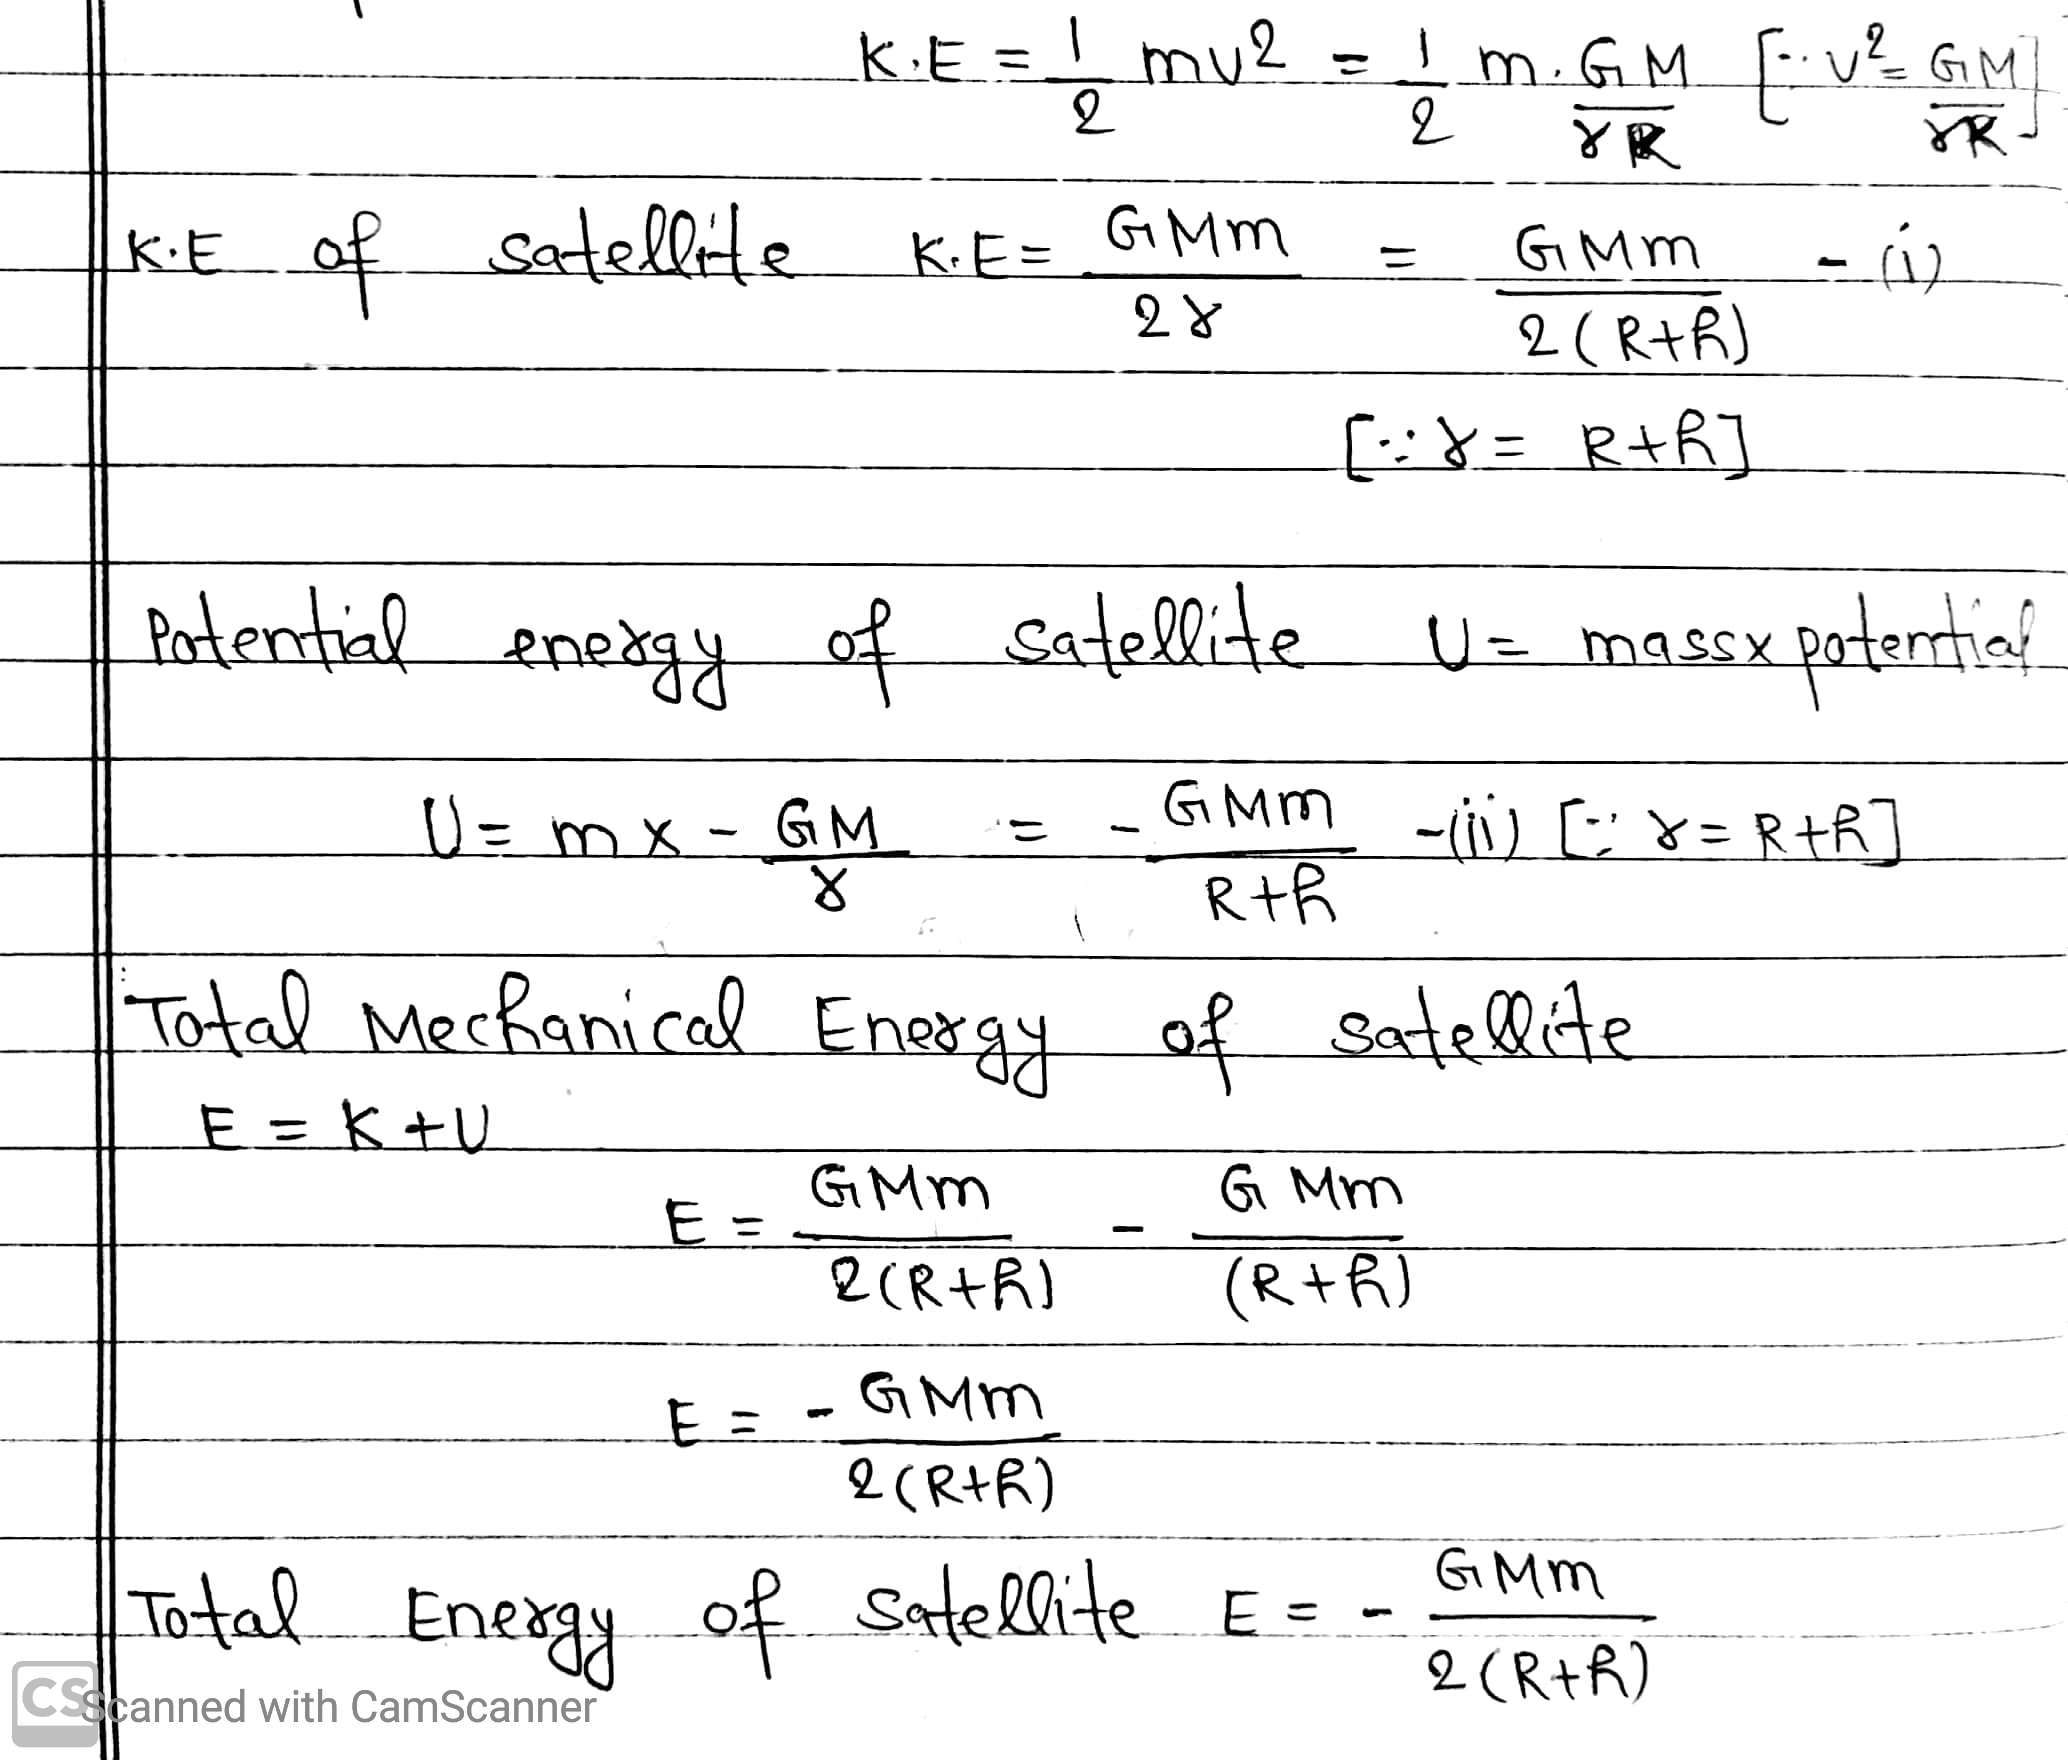 K.E = 1/2 mv² = 1/2 m. GM/r [∵ v² = GM/r]
K.E of satellite K.E = GMm/2r = GMm/2(R+h) - (i)
[∵ r = R+h]
Potential energy of satellite U = mass x potential
U = m x - GM/r = - GMm/R+h -(ii) [∵ r = R+h]
Total Mechanical Energy of satellite
E = K + U
E = GMm/2(R+h) - GMm/(R+h)
E = - GMm/2(R+h)
Total Energy of satellite E = - GMm/2(R+h)
CS Scanned with CamScanner